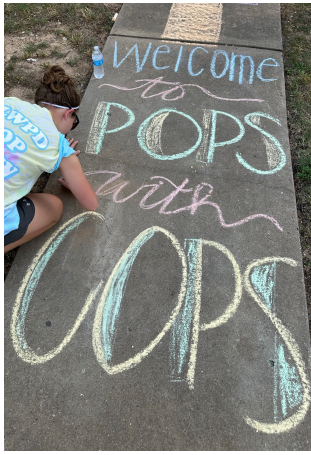 Welcome
to
POPS
with
COPS